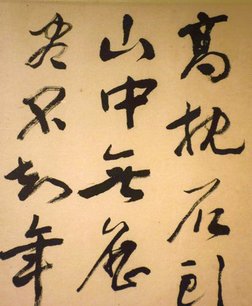 高枕石頭
山中無曆
盡不知年